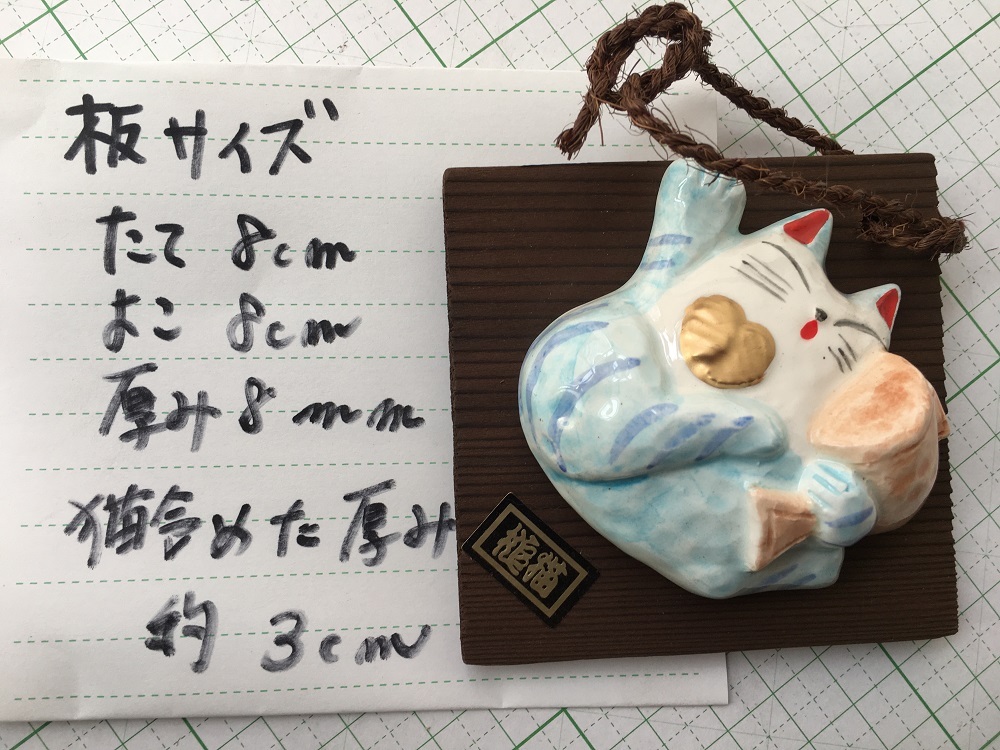 板サイズ
たて 8cm
よこ 8cm
厚み 8mm
猫含めた厚み
約 3cm